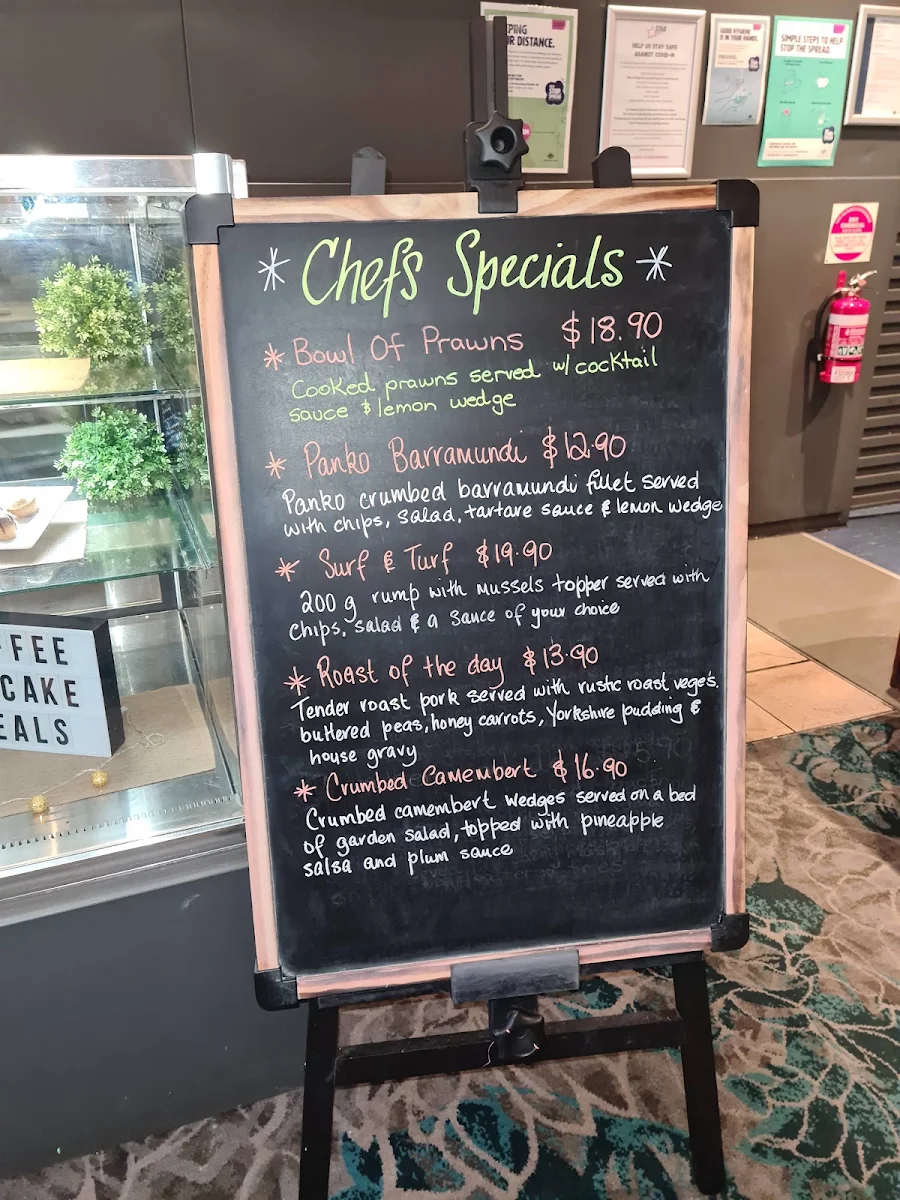 PING
R DISTANCE.
STAR
HELP US STAY SAFE
AGAINST COVID-19
GOOD HYGIENE
IS IN YOUR HANDS.
SIMPLE STEPS TO HELP
STOP THE SPREAD.
DRY
CHEMICAL
* Chef's Specials *
* Bowl Of Prawns $18.90
Cooked prawns served w/ cocktail
sauce & lemon wedge
* Panko Barramundi $12.90
Panko crumbed barramundi fillet served
with chips, salad, tartare sauce & lemon wedge
* Surf & Turf $19.90
200g rump with mussels topper served with
chips, salad & a sauce of your choice
* Roast of the day $13.90
Tender roast pork served with rustic roast vege's,
buttered peas, honey carrots, Yorkshire pudding &
house gravy
* Crumbed Camembert $16.90
Crumbed camembert wedges served on a bed
of garden salad, topped with pineapple
salsa and plum sauce
FFEE
CAKE
EALS